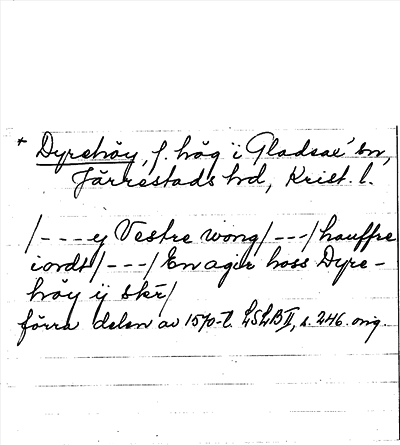 + Dyrehöy, f. hög i Gladsax sn,
Järrestads hd, Krist. l.
/---ej Vestre wong/---/hauffre
iordt/---/En ager hoss Dyre-
höy ij skr/
förra delen av 1570-t. LSLB II, s. 246. orig.